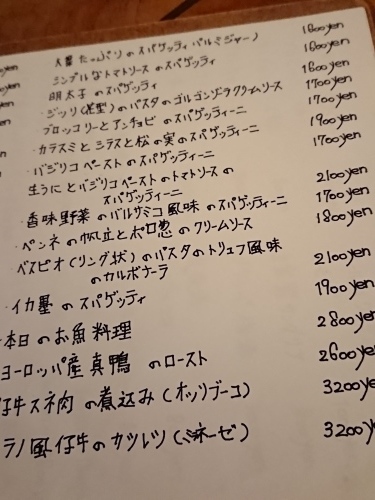 大量たっぷりのスパゲッティ パルミジャーノ 1600yen
シンプルなトマトソースのスパゲッティ 1600yen
明太子のスパゲッティ 1600yen
ジッリ(花型)のパスタのゴルゴンゾーラクリームソース 1700yen
ブロッコリーとアンチョビのスパゲッティーニ 1700yen
・カラスミとシラスと松の実のスパゲッティーニ 1900yen
・バジリコペーストのスパゲッティーニ 1700yen
生うにとバジリコペーストのトマトソースの
スパゲッティーニ 2100yen
・香味野菜のバルサミコ風味のスパゲッティーニ 1700yen
・ペンネの帆立とポロ葱のクリームソース 1800yen
ベスピオ(リング状)のパスタのトリュフ風味
のカルボナーラ 2100yen
・イカ墨のスパゲッティ 1900yen
本日のお魚料理 2800yen
ヨーロッパ産真鴨 のロースト 2600yen
仔牛スネ肉の煮込み(オッソブーコ) 3200yen
ラノ風仔牛のカツレツ(ミラネーゼ) 3200yen